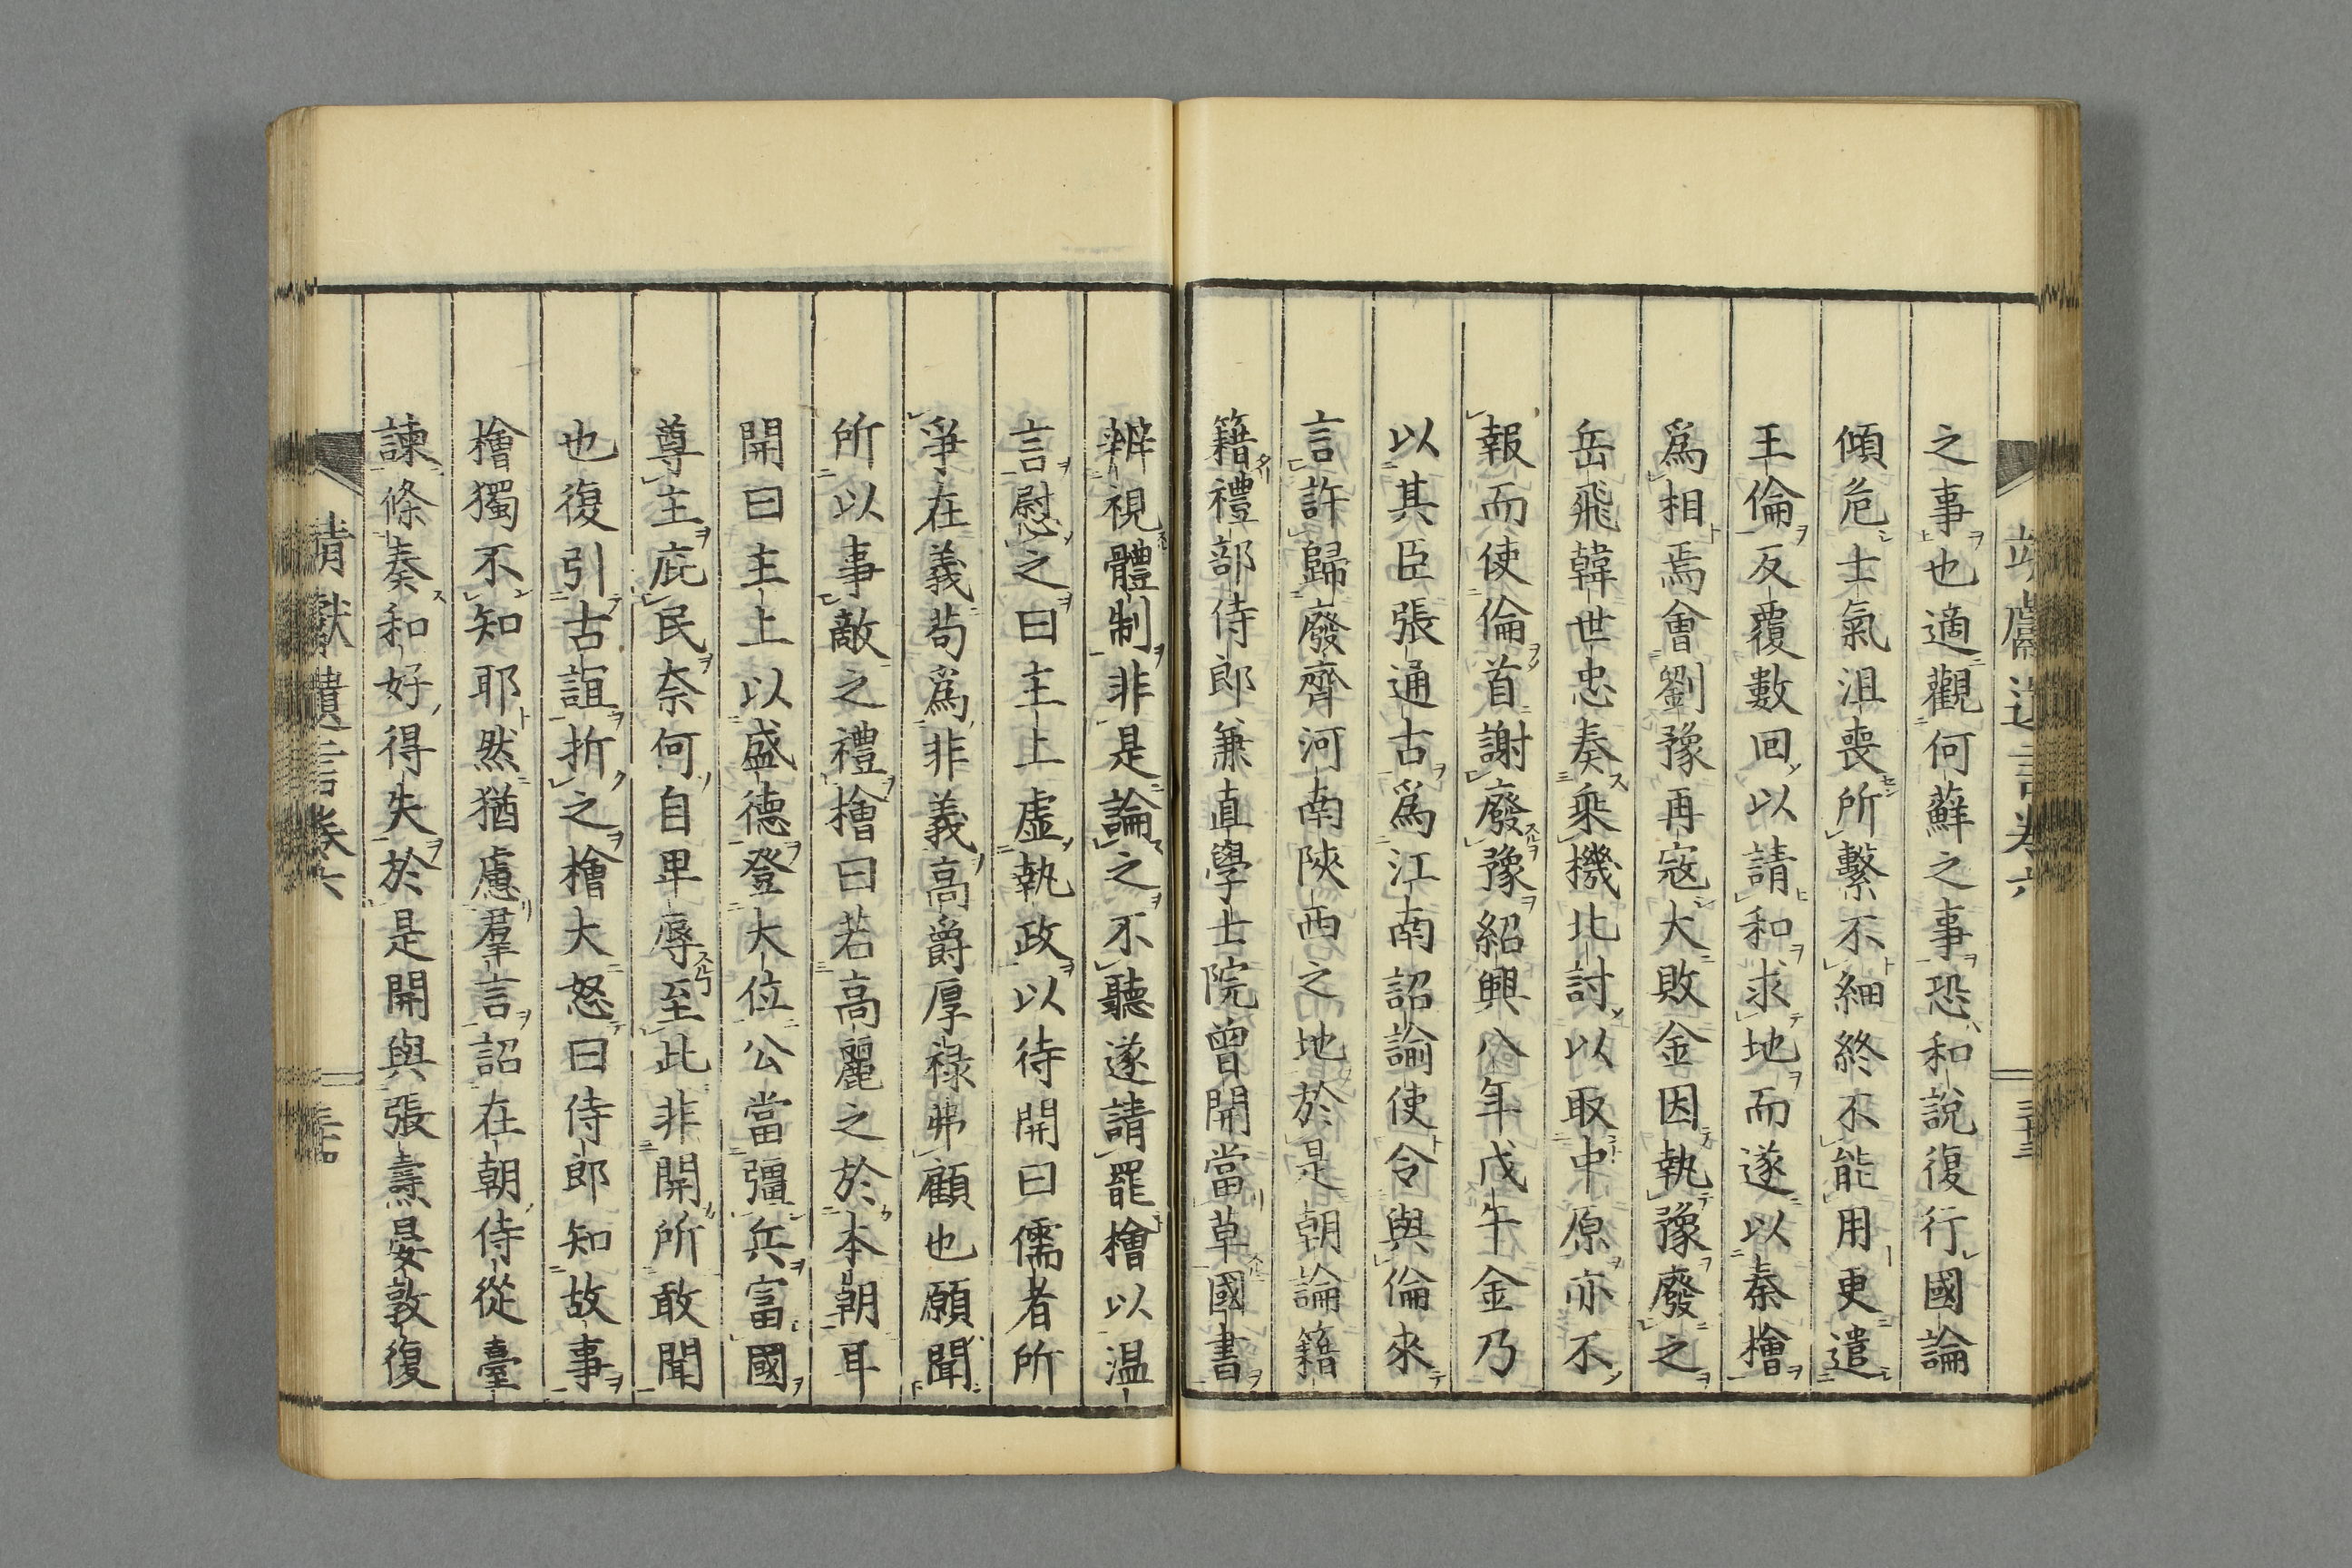 之事也適觀何蘚之事恐和說復行國論
傾危士氣沮喪所繫不細終不能用更遣
王倫反覆數回以請和求地而遂以秦檜
爲相焉會劉豫再寇大敗金因執豫廢之
岳飛韓世忠奏乘機北討以取中原亦不
報而使倫首謝廢豫紹興八年戊午金乃
以其臣張通古爲江南詔諭使令與倫來
言許歸廢齊河南陝西之地於是朝論籍
籍禮部侍郎兼直學士院曾開當草國書
辨視體制非是論之不聽遂請罷檜以温
言慰之曰主上虛執政以待開曰儒者所
爭在義苟爲非義高爵厚祿弗顧也願聞
所以事敵之禮檜曰若高麗之於本朝耳
開曰主上以盛德登大位公當彊兵富國
尊主庇民奈何自卑辱至此非開所敢聞
也復引古誼折之檜大怒曰侍郎知故事
檜獨不知耶然猶慮羣言詔在朝侍從臺
諫條奏和好得失於是開與張燾晏敦復
靖獻遺言卷六